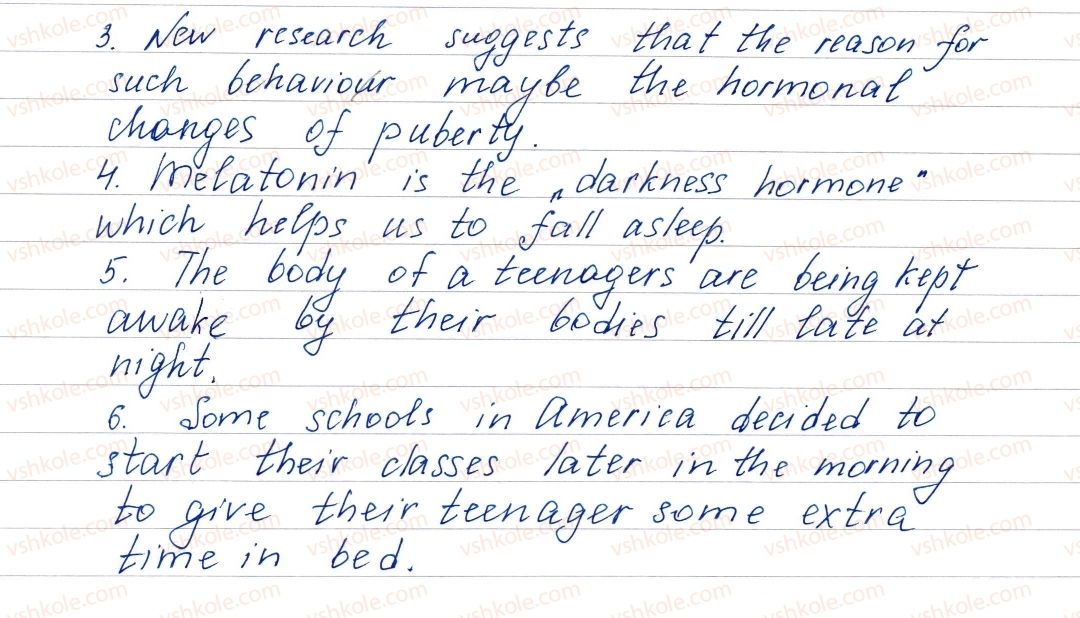 3. New research suggests that the reason for
such behaviour maybe the hormonal
changes of puberty.
4. Melatonin is the „darkness hormone"
which helps us to fall asleep.
5. The body of a teenagers are being kept
awake by their bodies till late at
night.
6. Some schools in America decided to
start their classes later in the morning
to give their teenager some extra
time in bed.